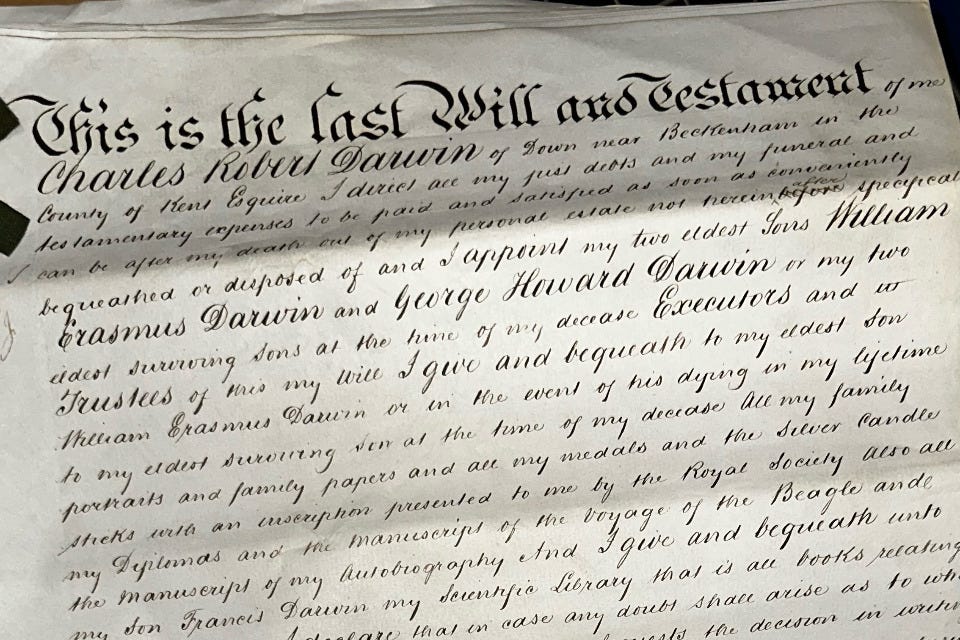 This is the last Will and Testament of me
Charles Robert Darwin of Down near Beckenham in the
County of Kent Esquire I direct all my just debts and my funeral and
testamentary expenses to be paid and satisfied as soon as conveniently
after
can be after my death out of my personal estate not herein before specifical
bequeathed or disposed of and I appoint my two eldest Sons William
Erasmus Darwin and George Howard Darwin or my two
eldest surviving sons at the time of my decease Executors and
Trustees of this my Will I give and bequeath to my eldest son
William Erasmus Darwin or in the event of his dying in my lifetime
to my eldest surviving son at the time of my decease All my family
portraits and family papers and all my medals and the Silver Candle
sticks with an inscription presented to me by the Royal Society Also all
my Diplomas and the manuscript of the Voyage of the Beagle and
the manuscript of my Autobiography And I give and bequeath unto
my son Francis Darwin my Scientific Library that is all books relating
declare that in case any doubt shall arise as to
the decision in